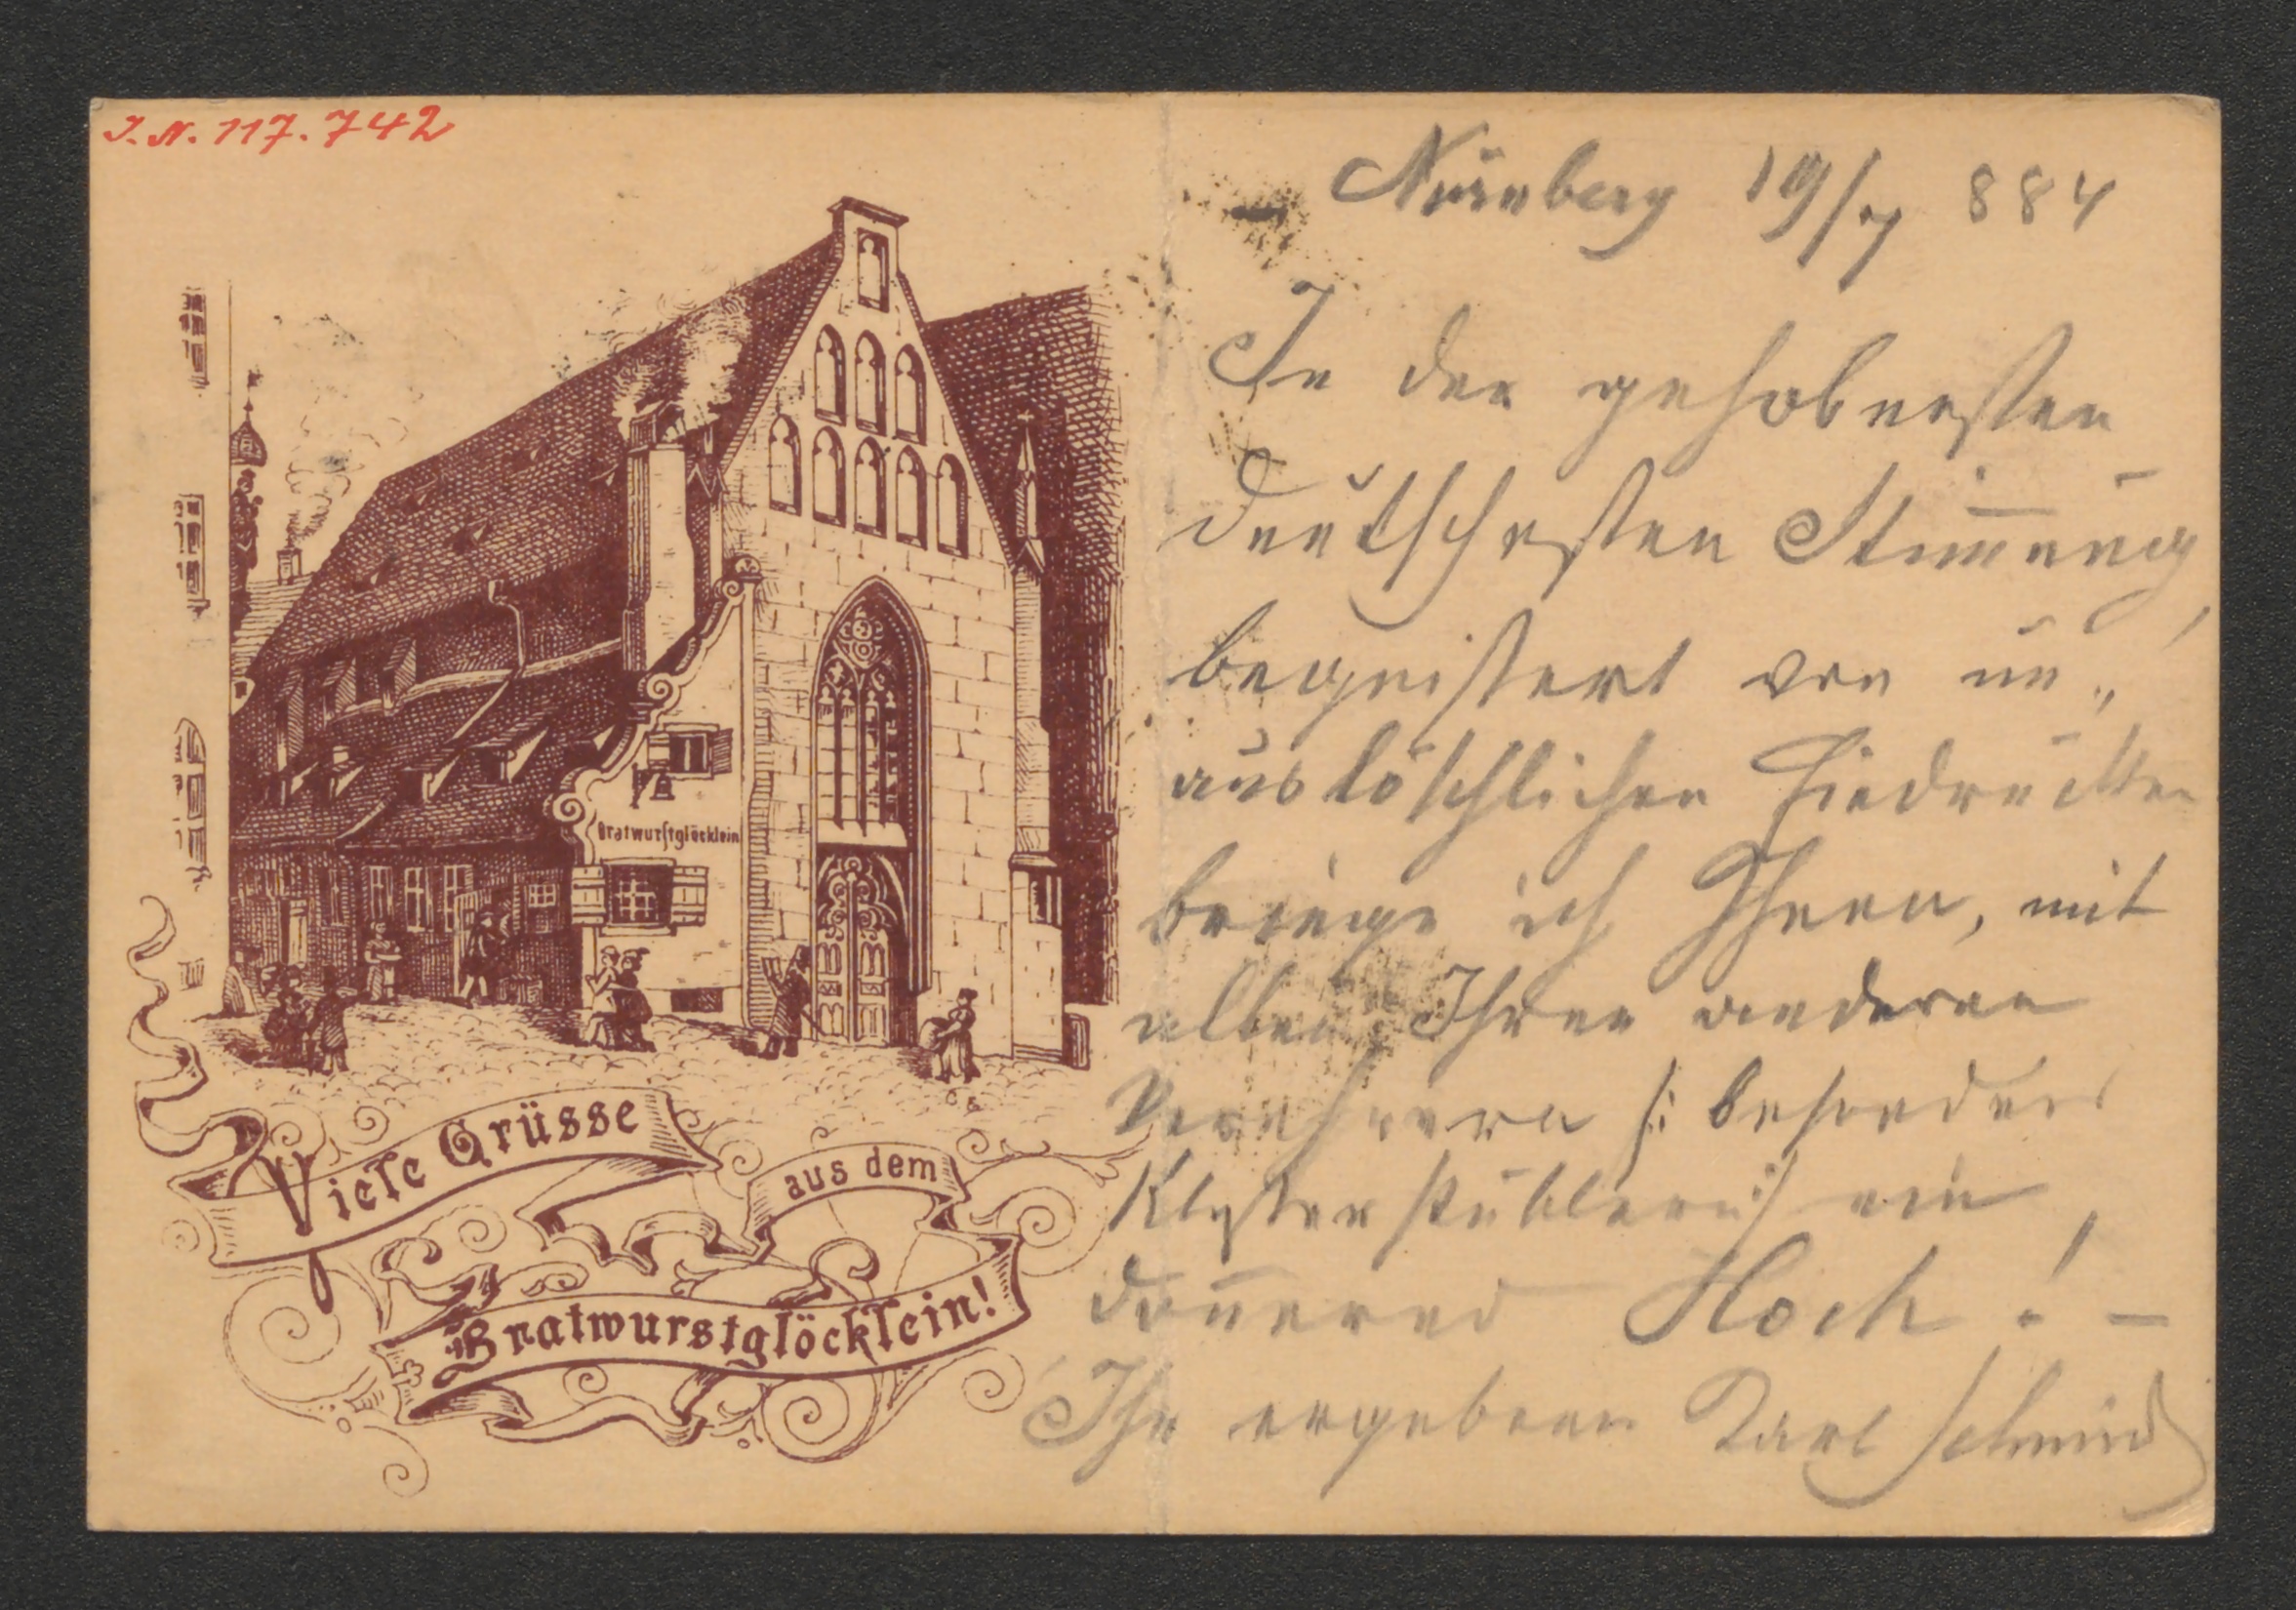 J. N. 117.742
Bratwurstglöcklein
Viele Grüsse
aus dem
Bratwurstglöcklein!
Nürnberg 19/7 884
In der gehobensten
deutschesten Stim̅ung,
begeistert von un„
auslöschlichen Eindrücken
bringe ich Ihnen, mit
allen Ihren anderen
Verehrern /: besonders
Klosterstüblern :/ ein
donnernd Hoch! –
Ihr ergebener Karl Schmid